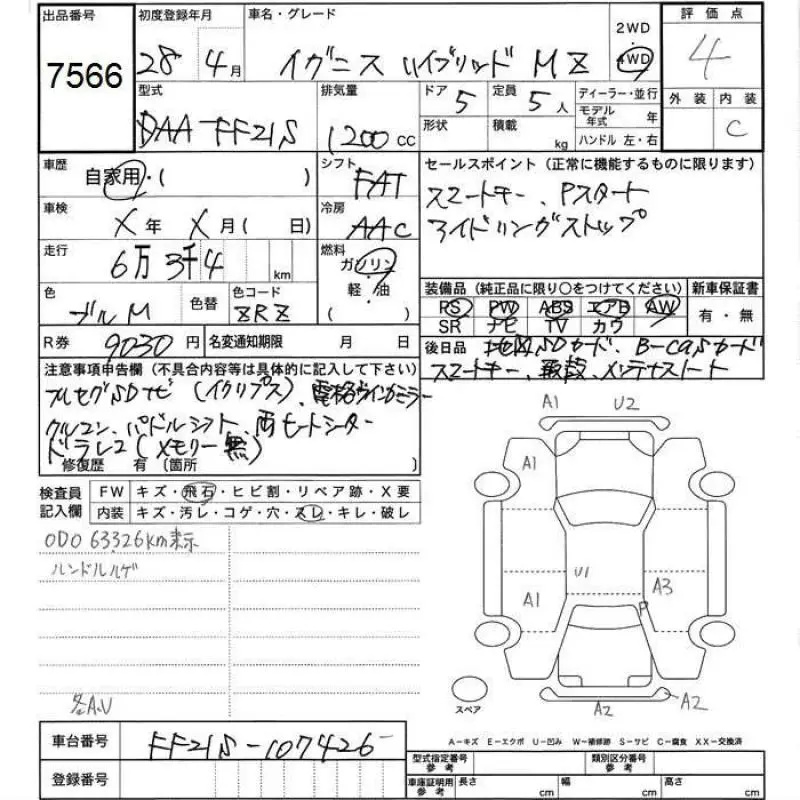 出品番号 初度登録年月 車名・グレード 2WD 評価点
7566 28 4月 イグニス ハイブリッド MZ 4WD 4
型式 排気量 ドア 5 定員 5人 ディーラー・並行 外装 内装
DAA FF21S 1200cc 形状 積載 kg モデル年式 年 C
ハンドル 左・右
車歴 自家用・( ) シフト FAT セールスポイント(正常に機能するものに限ります)
車検 X年 X月( 日) 冷房 AAC スマートキー、Pスタート
アイドリングストップ
走行 6万3千4 km 燃料 ガソリン・軽・油 ( )
色 ブルM 色替 色コード ZRZ 装備品(純正品に限り○をつけてください) 新車保証書
PS PW ABS エアB AW 有・無
SR ナビ TV カワ
R券 9030円 名変通知期限 月 日 後日品 地図SDカード、B-CASカード
スマートキー、取説、メンテナスノート
注意事項申告欄(不具合内容等は具体的に記入して下さい)
フルセグSDナビ(イクリプス)、電格ウインカーミラー
クルコン、パドルシフト、両ヒートシーター
ドラレコ(メモリー無)
修復歴 有(箇所 )
検査員記入欄 FW キズ・飛石・ヒビ割・リペア跡・X要
内装 キズ・汚レ・コゲ・穴・スレ・キレ・破レ
ODO 63326km表示
ハンドルハゲ
各A.U
A1 U2
A1
U1 A3
A1 P
A2 A2
スペア
A－キズ E－エクボ U－凹み W－補修跡 S－サビ C－腐食 XX－交換済
車台番号 FF21S-107426
登録番号
型式指定番号 参考 類別区分番号 参考
車庫証明用 参考 長さ cm 幅 cm 高さ cm